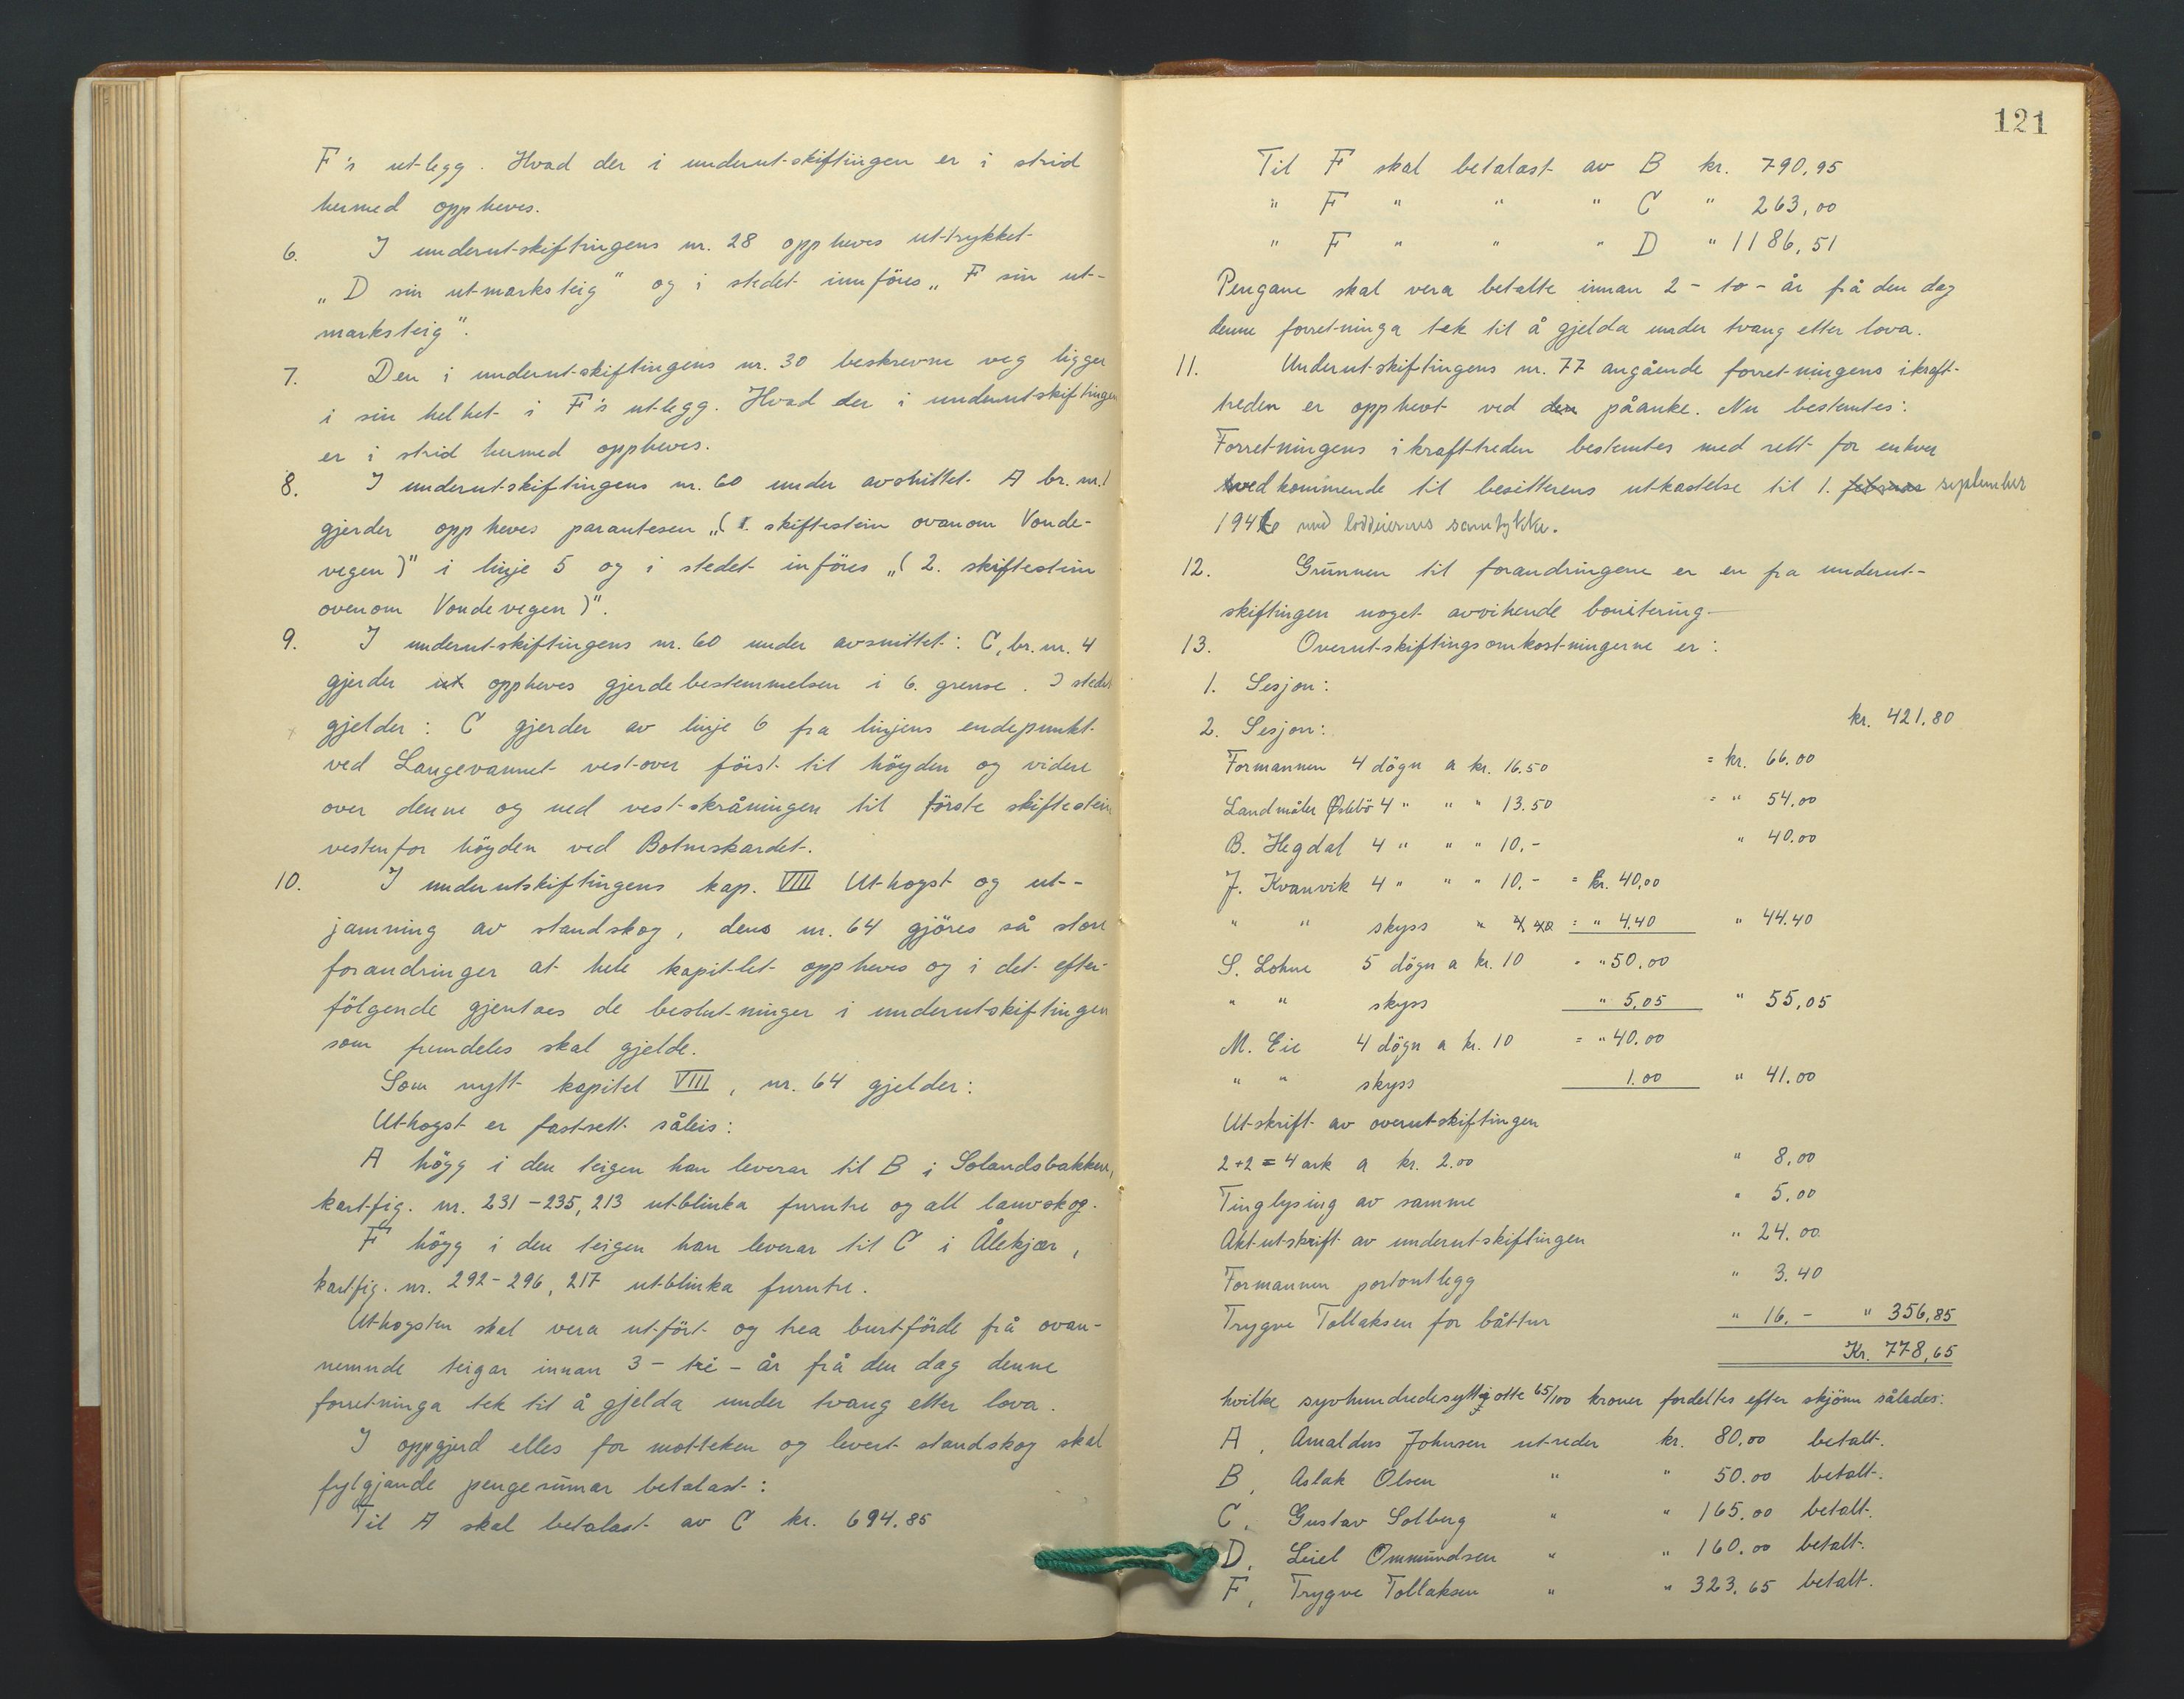 F's utlegg. Hvad der i underutskiftingen er i strid
hermed oppheves.
6. I underutskiftingens nr. 28 oppheves uttrykket
„D sin utmarksteig" og i stedet innföres „F sin ut-
marksteig".
7. Den i underutskiftingens nr. 30 beskrevne veg ligger
i sin helhet i F's utlegg. Hvad der i underutskiftingen
er i strid hermed oppheves.
8. I underutskiftingens nr. 60 under avsnittet A br. nr. 1
gjerder oppheves parantesen „(1. skiftestein ovanom Vonde-
vegen)" i linje 5 og i stedet införes „(2. skiftestein
ovenom Vondevegen)".
9. I underutskiftingens nr. 60 under avsnittet: C, br. nr. 4
gjerder ut oppheves gjerdebestemmelsen i 6. grense. I stedet
gjelder: C gjerder av linje 6 fra linjens endepunkt
ved Langevannet vestover först til höyden og videre
over denne og ned vestskråningen til förste skiftestein
vestenfor höyden ved Botnskardet.
10. I underutskiftingens kap. VIII Uthogst og ut-
jamning av standskog, dens nr. 64 gjöres så store
forandringer at hele kapitlet oppheves og i det efter-
fölgende gjentaes de beslutninger i underutskiftingen
som fremdeles skal gjelde.
Som nytt kapitel VIII, nr. 64 gjelder:
Uthogst er fastsett såleis:
A högg i den teigen han leverar til B i Solandsbakken,
kartfig. nr. 231-235, 213 utblinka furutre og all lauvskog.
F högg i den teigen han leverar til C i Ålekjær,
kartfig. nr. 292-296, 217 utblinka furutre.
Uthogsten skal vera utfört og trea burtförde frå ovan-
nemnde teigar innan 3 - tri - år frå den dag denne
forretninga tek til å gjelda under tvang etter lova.
I oppgjerd elles for motteken og levert standskog skal
fylgjande pengesumar betalast:
Til A skal betalast av C kr. 694.85
121
Til F skal betalast av B kr. 790,95
" F " " " C " 263,00
" F " " " D " 1186,51
Pengane skal vera betalte innan 2 - to - år frå den dag
denne forretninga tek til å gjelda under tvang etter lova.
11. Underutskiftingens nr. 77 angående forretningens ikraft-
treden er opphevt ved den påanke. Nu bestemtes:
Forretningens ikrafttreden bestemtes med rett for enhver
vedkommende til besitterens utkastelse til 1. februar september
1946 med loddeiernes samtykke.
12. Grunnen til forandringene er en fra underut-
skiftingen noget avvikende bonitering
13. Overutskiftingsomkostningerne er:
1. Sesjon:
kr. 421.80
2. Sesjon:
Formannen 4 dögn a kr. 16.50 = kr. 66.00
Landmåler 4 " " " 13.50 = " 54.00
B. Hegdal 4 " " " 10.- " 40.00
J. Kvanvik 4 " " " 10.- = kr. 40,00
" " skyss " 4,40 = " 4.40 " 44.40
S. Lohne 5 dögn a kr. 10 " " 50.00
" " skyss " 5,05 " 55,05
M. Eie 4 dögn a kr. 10 = " 40.00
" " skyss 1.00 " 41.00
Utskrift av overutskiftingen
2+2 = 4 ark a kr. 2.00 " 8,00
Tinglysing av samme " 5.00
Aktutskrift av underutskiftingen " 24.00
Formannen portoutlegg " 3.40
Trygve Tollaksen for båttur " 16.- " 356,85
Kr. 778,65
hvilke syvhundredesyttiotte 65/100 kroner fordeltes efter skjönn således:
A, Arnaldus Johnsen utreder kr. 80,00 betalt.
B, Aslak Olsen " " 50.00 betalt.
C, Gustav Solberg " " 165.00 betalt.
D, Leiel Ommundsen " " 160.00 betalt.
F, Trygve Tollaksen " " 323.65 betalt.